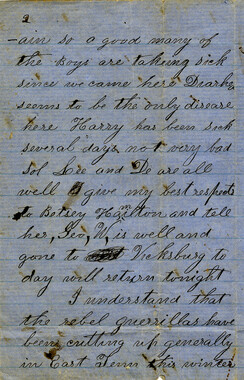 2
-ain so a good many of
the Boys are taking sick
since we came here Diarhe
seems to be the only disease
here Harry has been sick
several days not very bad
Sol and De are all
well give my best respects
to Betsey Hamilton and tell
her, Geo, W, is well and
gone to Vicksburg to
day will return tonight
I understand that
the rebel guerrillas have
been cutting up generally
in East Tenn this winter